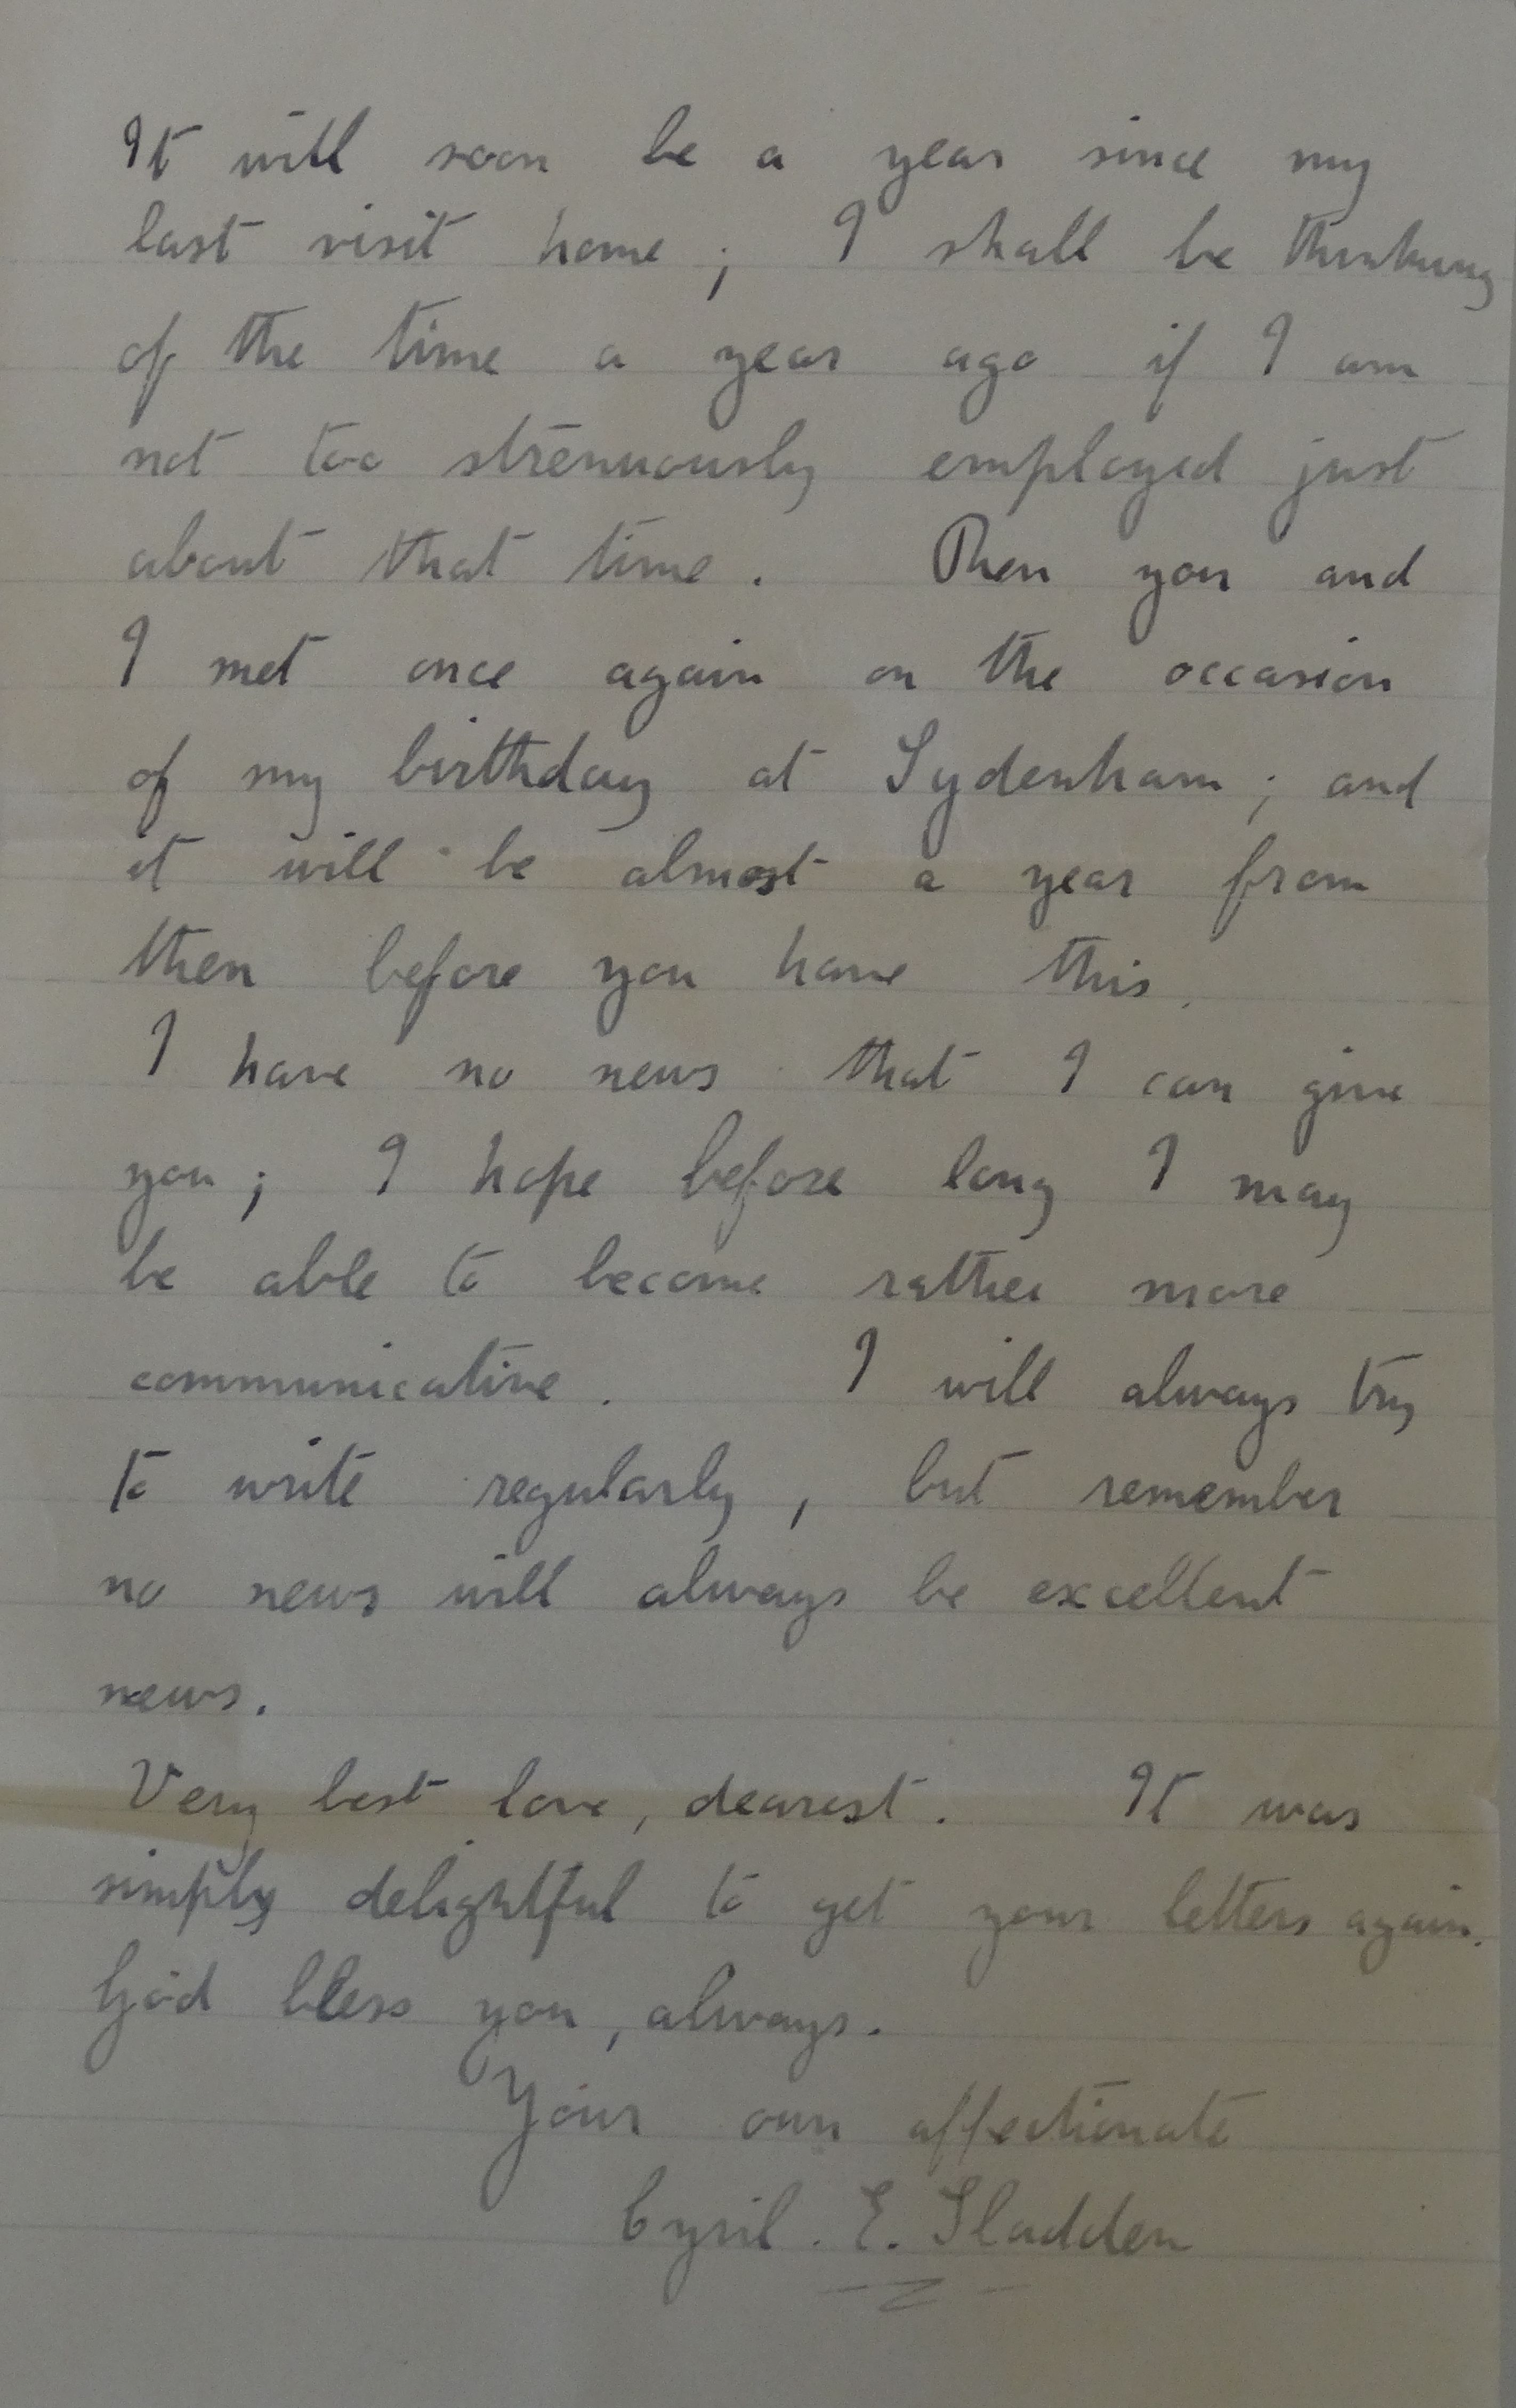 It will soon be a year since my
last visit home; I shall be thinking
of the time a year ago if I am
not too strenuously employed just
about that time. Then you and
I met once again on the occasion
of my birthday at Sydenham; and
it will be almost a year from
then before you have this.
I have no news that I can give
you; I hope before long I may
be able to become rather more
communicative. I will always try
to write regularly, but remember
no news will always be excellent
news.
Very best love, dearest. It was
simply delightful to get your letters again.
God bless you, always.
Your own affectionate
Cyril. E. Sladden